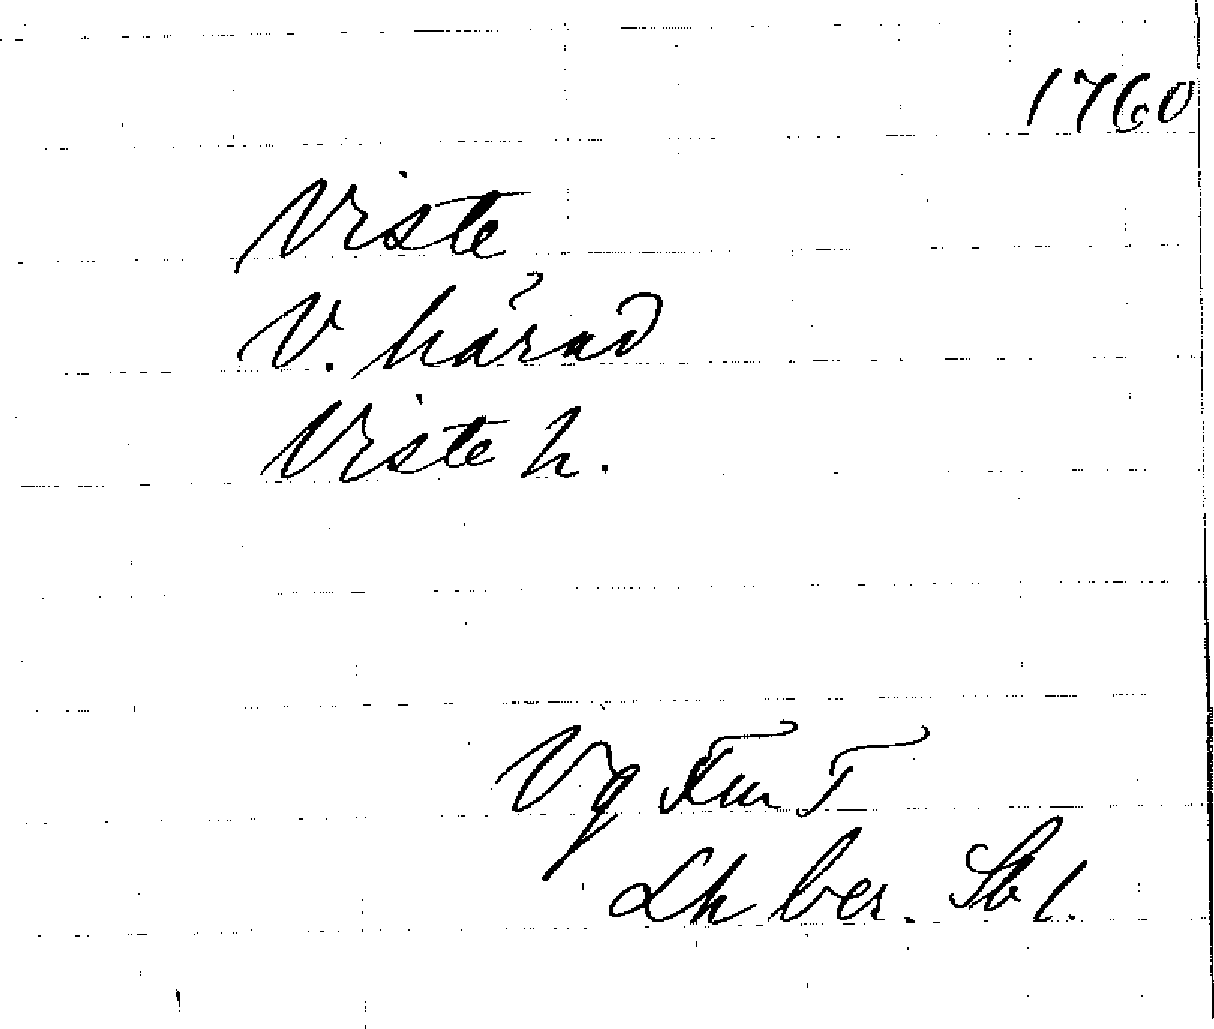 1760
Viste
V. härad
Viste h.
Vg Fm T
Lh ber. Sbl.